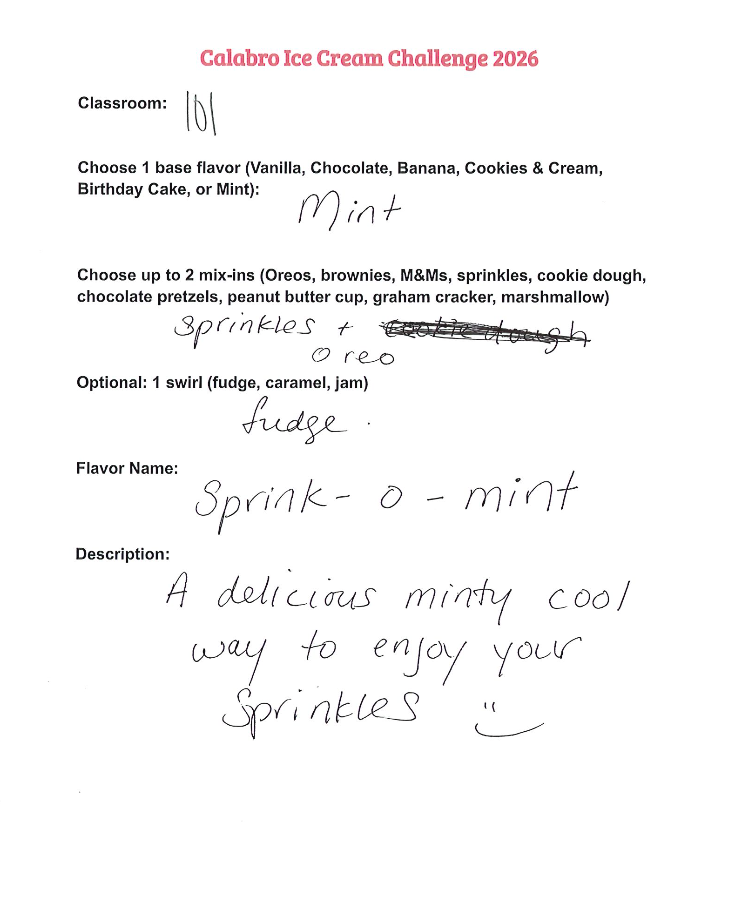 Calabro Ice Cream Challenge 2026
Classroom: 101
Choose 1 base flavor (Vanilla, Chocolate, Banana, Cookies & Cream,
Birthday Cake, or Mint):
Mint
Choose up to 2 mix-ins (Oreos, brownies, M&Ms, sprinkles, cookie dough,
chocolate pretzels, peanut butter cup, graham cracker, marshmallow)
Sprinkles + cookie dough
Oreo
Optional: 1 swirl (fudge, caramel, jam)
fudge.
Flavor Name:
Sprink- o - mint
Description:
A delicious minty cool
way to enjoy your
Sprinkles